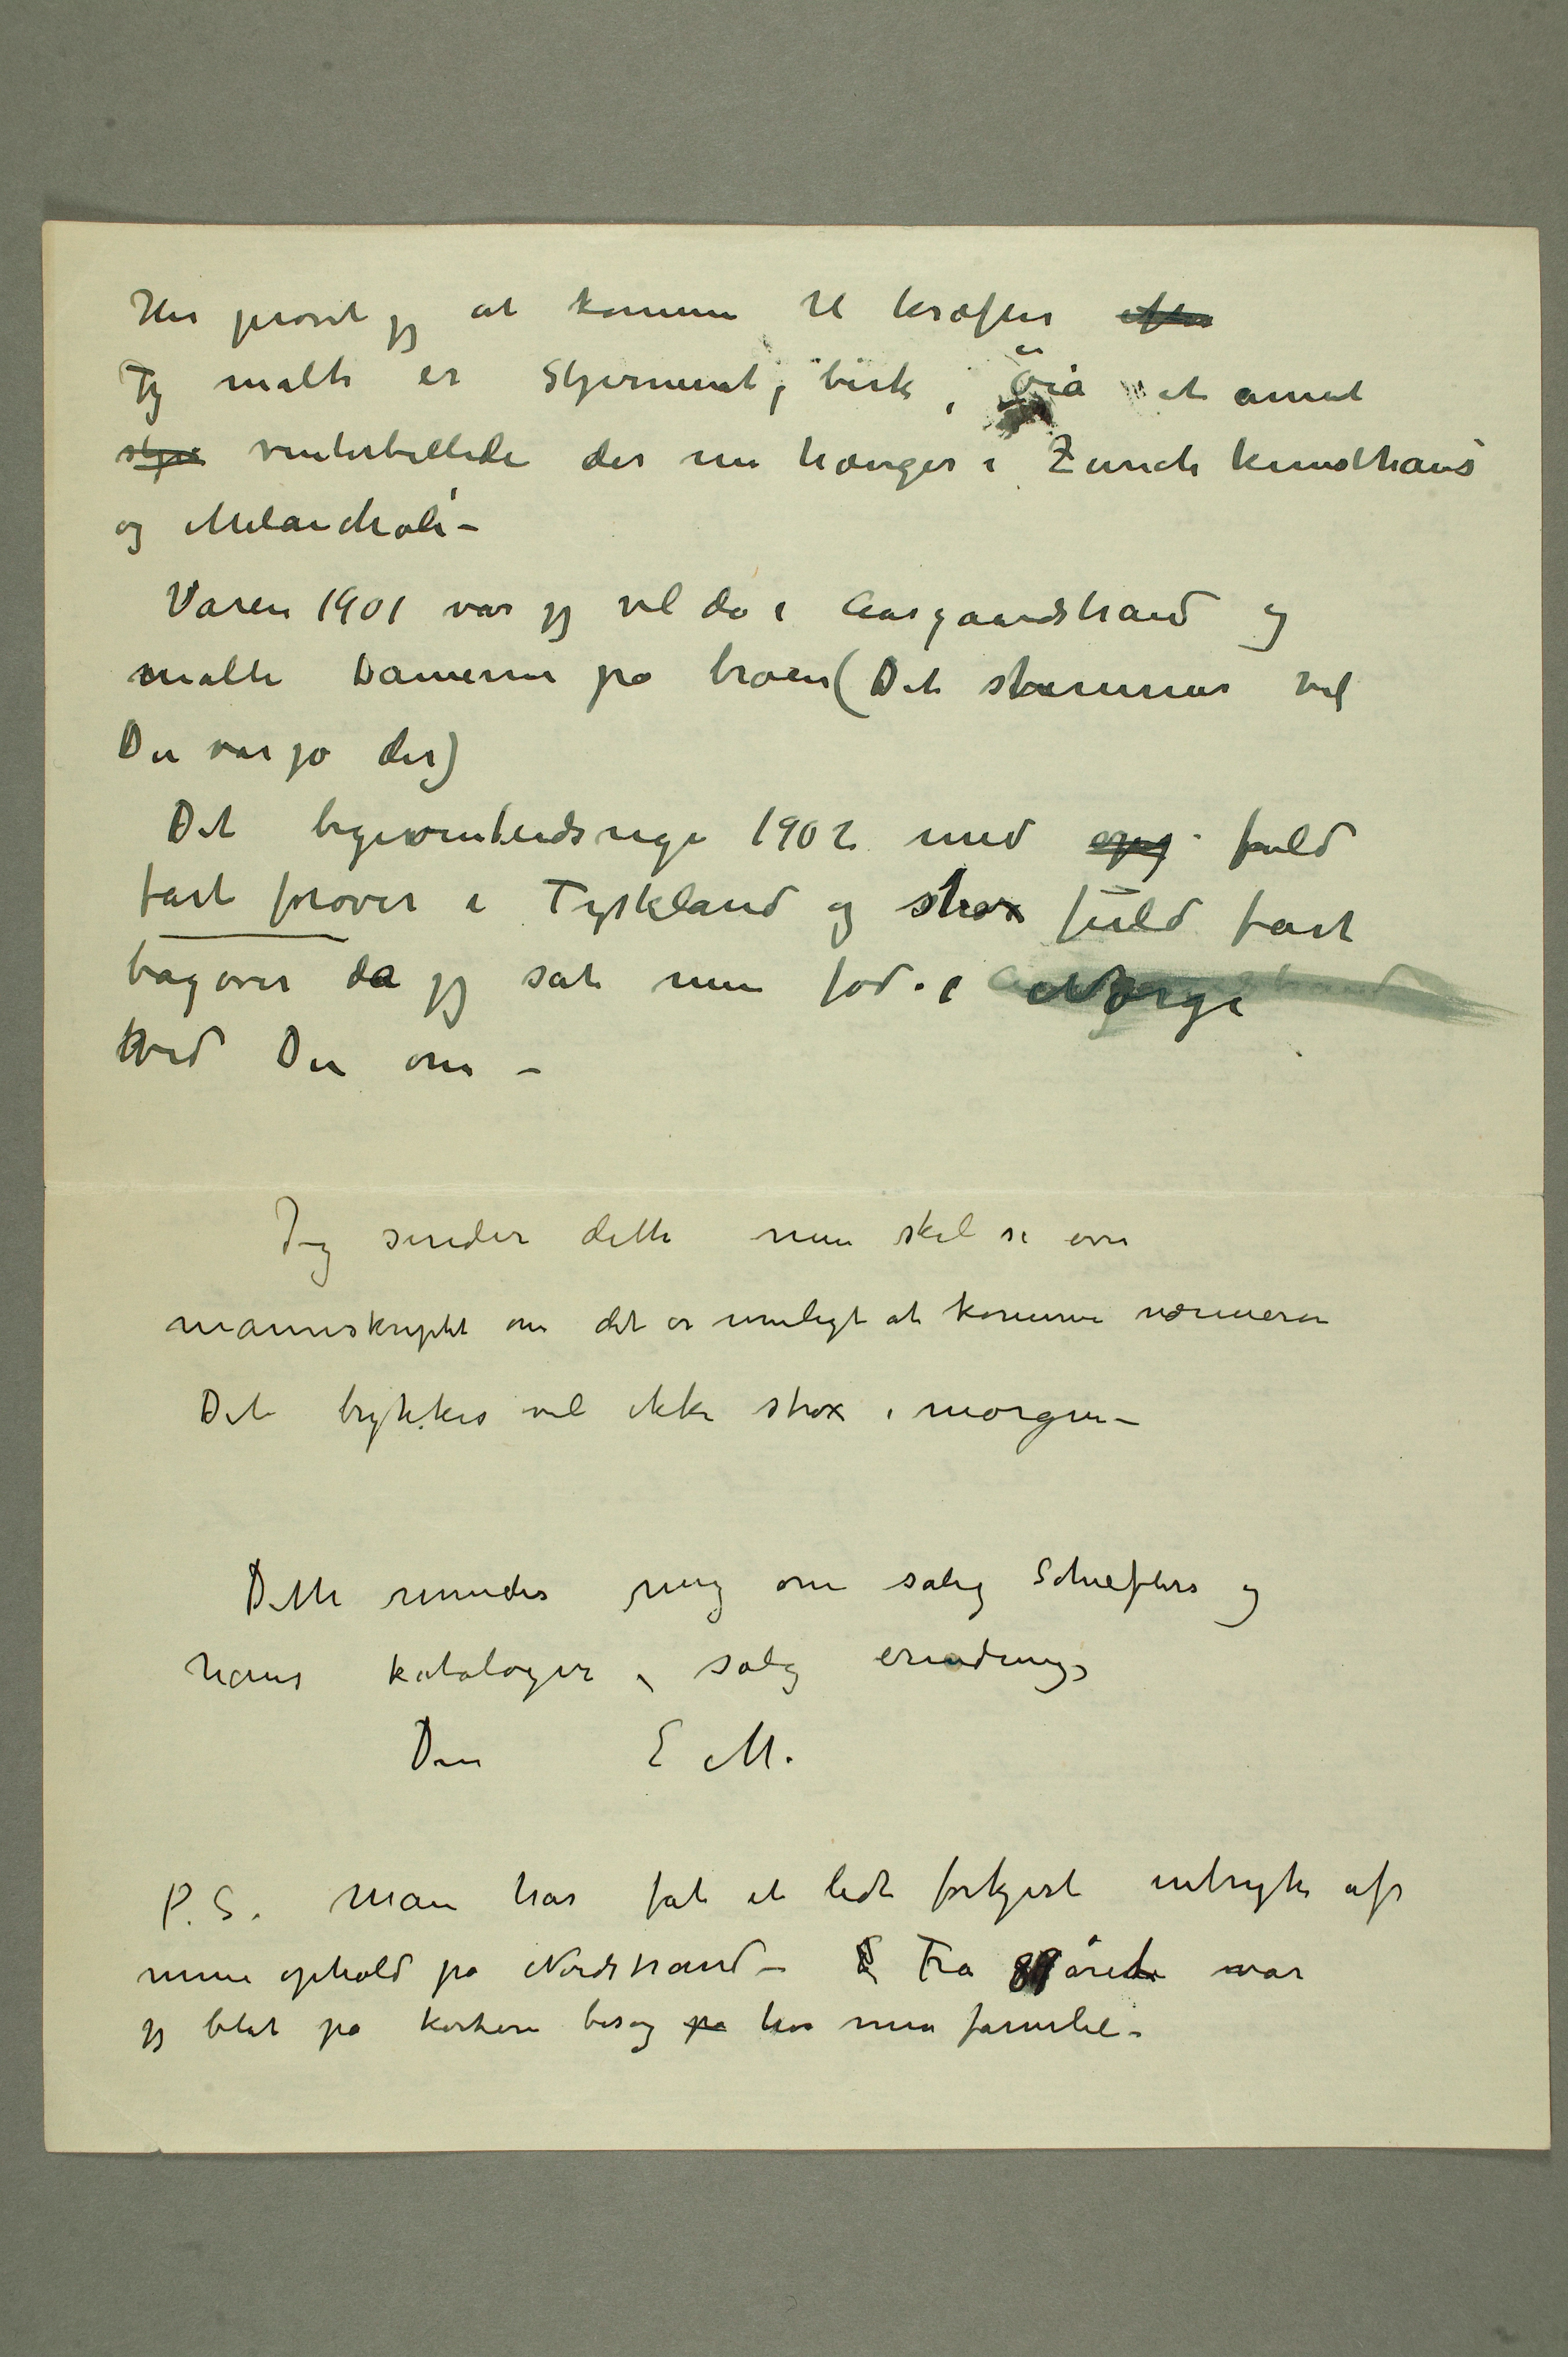 Her prøvet jeg at komme til kræfter efter
Jeg malte en Stjernenat, birk i Öia et annet
stjer vinterbillede der nu hænger i Zürich kunsthaus
og Melancholi –
Våren 1901 var jeg vel da i Aasgaardstrand og
malte Damerne på broen (Det stemmer vel
De var jo der)
Det begivenhedsrige 1902 med  fuld
fart forover i Tyskland og strax fuld fart
bagover da jeg sat min fod i Norge
ved De om –
Jeg sender dette men skal se over
manuskriptet om det er muligt at komme nærmere
Det trykkes vel ikke strax i morgen –
Dette minder mig om salig Schiefler og
hans kataloger, salig erindring
Den E M.
P.S. Man har fåt et lidt forkjert indtryk af
mine ophold på Nordstrand – Fra 89 året var
jeg blot på kortere besøg på hos min familie –